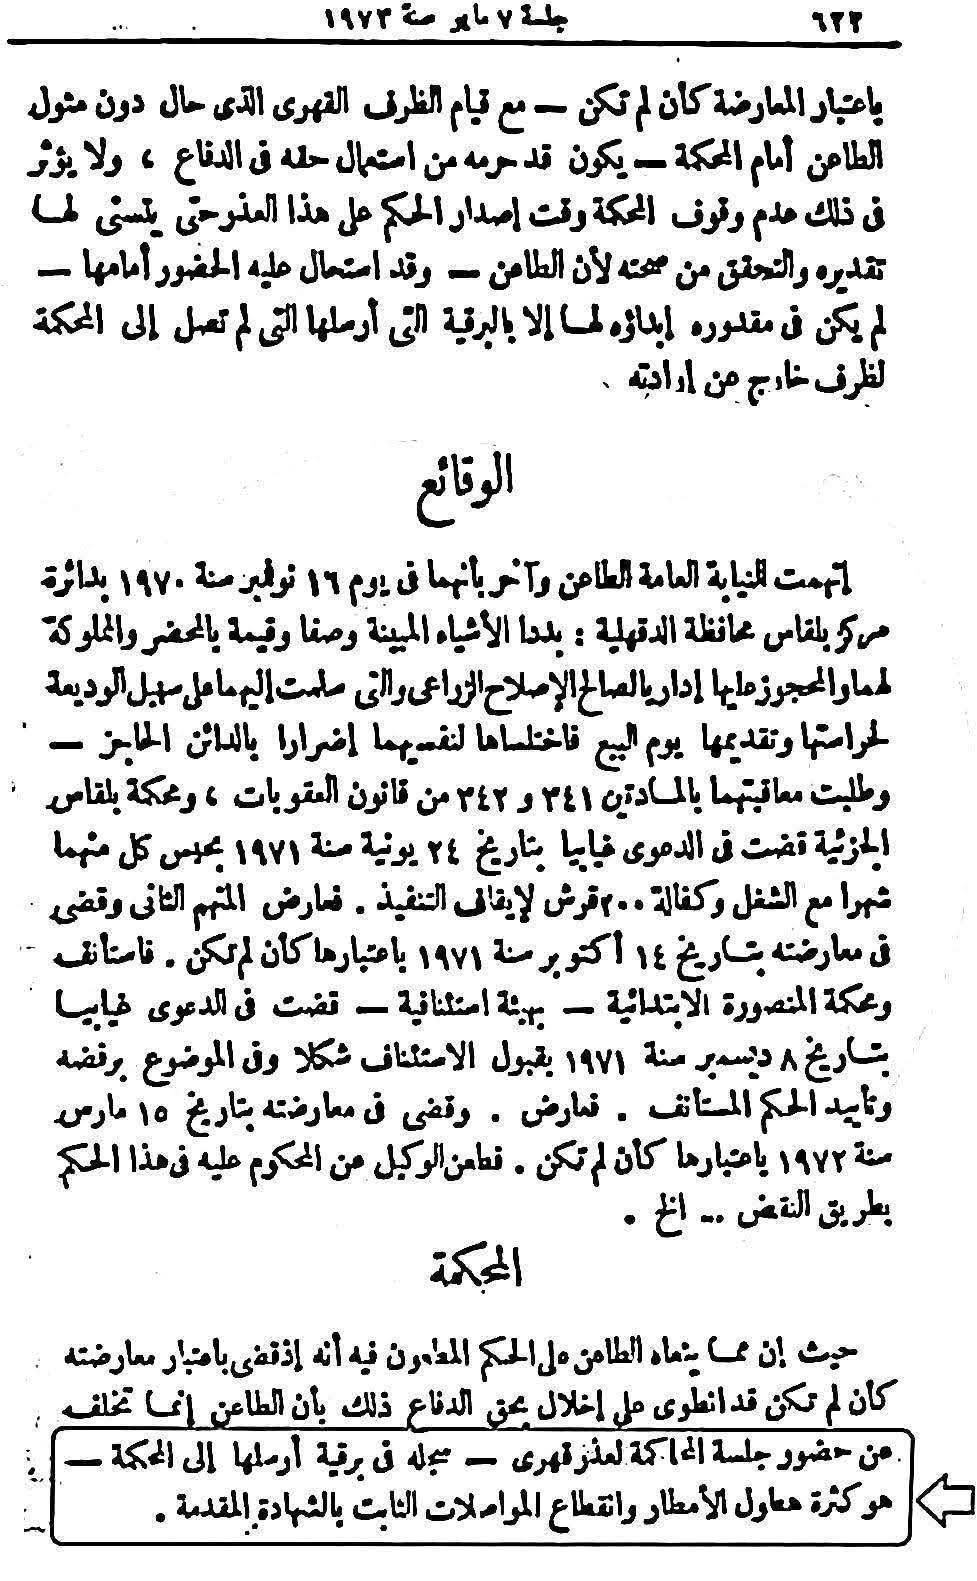 ٦٢٢ جلسة ٧ مايو سنة ١٩٧٣
باعتبار المعارضة كأن لم تكن — مع قيام الظرف القهرى الذى حال دون مثول
الطاعن أمام المحكمة — يكون قد حرمه من استعمال حقه فى الدفاع ، ولا يؤثر
فى ذلك عدم وقوف المحكمة وقت إصدار الحكم على هذا العذر حتى يتسنى لهـا
تقديره والتحقق من صحته لأن الطاعن — وقد استحال عليه الحضور أمامها —
لم يكن فى مقدوره إبداؤه لهـا إلا بالبرقية التى أرسلها التى لم تصل إلى المحكمة
لظرف خارج عن إرادته .
الوقائع
إتهمت النيابة العامة الطاعن وآخر بأنهما فى يوم ١٦ نوفمبر سنة ١٩٧٠ بدائرة
مركز بلقاس محافظة الدقهلية : بددا الأشياء المبينة وصفا وقيمة بالمحضر والمملوكة
لهما والمحجوز عليها إداريا لصالح الإصلاح الزراعى والتى سلمت إليهما على سبيل الوديعة
لحراستها وتقديمها يوم البيع فاختلساها لنفسيهما إضرارا بالدائن الحاجز —
وطلبت معاقبتهما بالمـادتين ٣٤١ و ٣٤٢ من قانون العقوبات ، ومحكمة بلقاس
الجزئية قضت فى الدعوى غيابيا بتاريخ ٢٤ يونية سنة ١٩٧١ بحبس كل منهما
شهرا مع الشغل وكفالة ٢٠٠ قرش لإيقاف التنفيذ . فعارض المتهم الثانى وقضى
فى معارضته بتـاريخ ١٤ أكتوبر سنة ١٩٧١ باعتبارها كأن لم تكن . فاستأنف
ومحكمة المنصورة الابتدائية — بهيئة استئنافية — قضت فى الدعوى غيابيـا
بتـاريخ ٨ ديسمبر سنة ١٩٧١ بقبول الاستئناف شكلا وفى الموضوع برفضه
وتأييد الحكم المستأنف . فعارض . وقضى فى معارضته بتاريخ ١٥ مارس
سنة ١٩٧٢ باعتبارها كأن لم تكن . فطعن الوكيل عن المحكوم عليه فى هذا الحكم
بطريق النقض ... الخ .
المحكمة
حيث إن ممـا ينعاه الطاعن على الحكم المطعون فيه أنه إذ قضى باعتبار معارضته
كأن لم تكن قد انطوى على إخلال بحق الدفاع ذلك بأن الطاعن إنمـا تخلف
عن حضور جلسة المحاكمة لعذر قهرى — سجله فى برقية أرسلها إلى المحكمة —
هو كثرة هطول الأمطار وانقطاع المواصلات الثابت بالشهادة المقدمة .